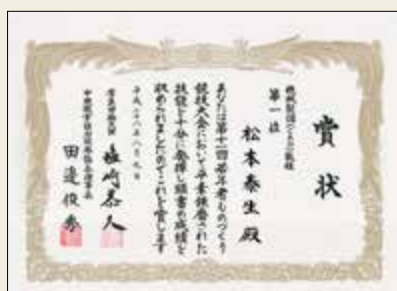 賞状
機械製図(CAD)職種
第一位
松本泰生殿
あなたは第十一回若年者ものづくり
競技大会において平素錬磨された
技能を十分に発揮し頭書の成績を
収められましたのでこれを賞します
平成二十八年八月九日
厚生労働大臣 塩崎恭久
中央職業能力開発協会理事長
田邉俊秀